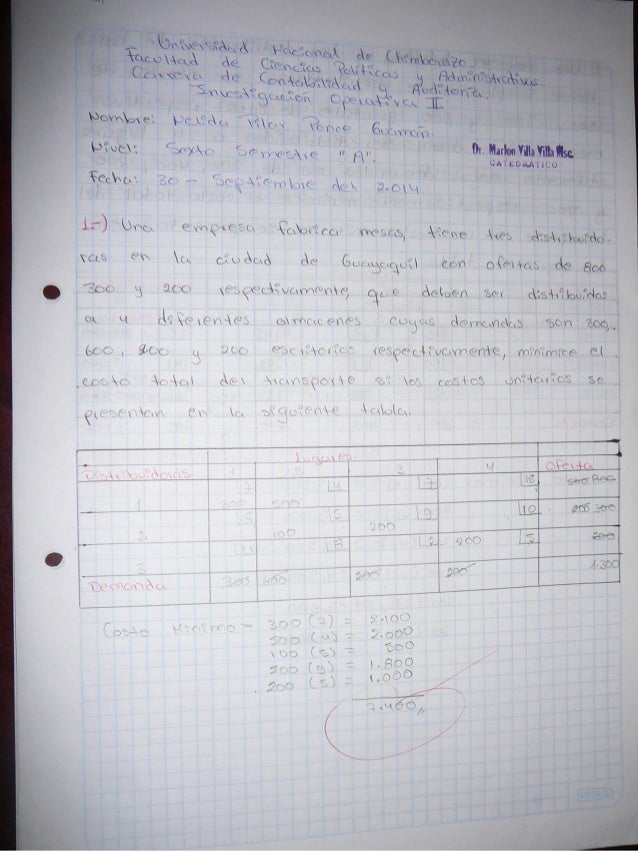 Universidad Nacional de Chimborazo.
Facultad de Ciencias Políticas y Administrativas.
Carrera de Contabilidad y Auditoría.
Investigación Operativa II.
Nombre: Nelida Pilar Ponce Guaman.
Nivel: Sexto Semestre "A".
Dr. Marlon Villa Villa Msc.
CATEDRATICO
Fecha: 30 - Septiembre del 2.014.
1.-) Una empresa fabrica mesas, tiene tres distribuido-
ras en la ciudad de Guayaquil con ofertas de 800
300 y 200 respectivamente, que deben ser distribuidos
a 4 diferentes almacenes cuyas demandas son 300,
600, 200 y 200 escritorios respectivamente, minimice el
costo total del transporte si los costos unitarios se
presentan en la siguiente tabla.
Lugares
Distribuidoras 1 2 3 4 Oferta
7 4 7 500 800
1 300 500
5 9 10 200 300
2 100 200
11 8 2 200 5 200
3 1.300
Demanda 300 600 200 200
Costo Minimo = 300 (7) = 2.100
500 (4) = 2.000
100 (5) = 500
200 (9) = 1.800
200 (5) = 1.000
7.400,,